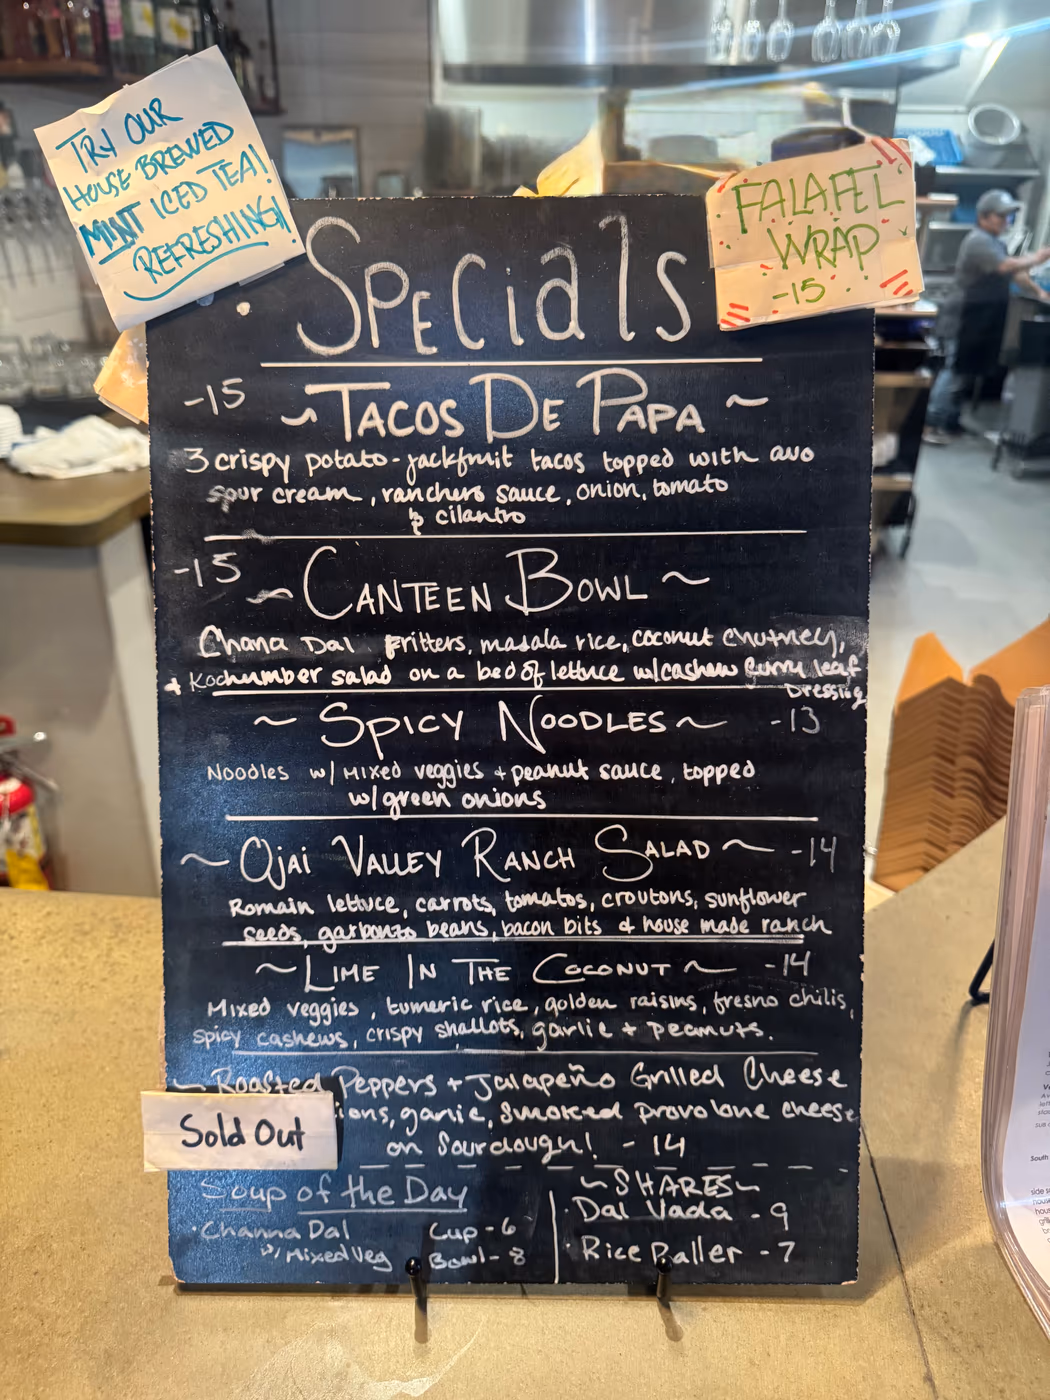 TRY OUR
HOUSE BREWED
MINT ICED TEA!
REFRESHING!
FALAFEL
WRAP
-15
SPECiAlS
-15
~ TACOS DE PAPA ~
3 crispy potato-jackfruit tacos topped with avo
sour cream, ranchero sauce, onion, tomato
& cilantro
-15
~ CANTEEN BOWL ~
Chana Dal Fritters, masala rice, coconut chutney,
+ Kochumber salad on a bed of lettuce w/cashew curry leaf
Dressing
~ SPICY NOODLES ~ -13
Noodles w/ Mixed veggies + peanut sauce, topped
w/green onions
~ Ojai VALLEY RANCH SALAD ~ -14
Romain lettuce, carrots, tomatos, croutons, sunflower
seeds, garbonzo beans, bacon bits & house made ranch
~ LIME IN THE COCONUT ~ -14
Mixed veggies, tumeric rice, golden raisins, fresno chilis,
spicy cashews, crispy shallots, garlic + peanuts.
~ Roasted Peppers + Jalapeño Grilled Cheese
ions, garlic, smoked provolone cheese
on Sourdough! - 14
Sold Out
Soup of the Day
• Channa Dal Cup - 6
w/ Mixed Veg Bowl - 8
~ SHARES ~
• Dal Vada - 9
• Rice Baller - 7
South